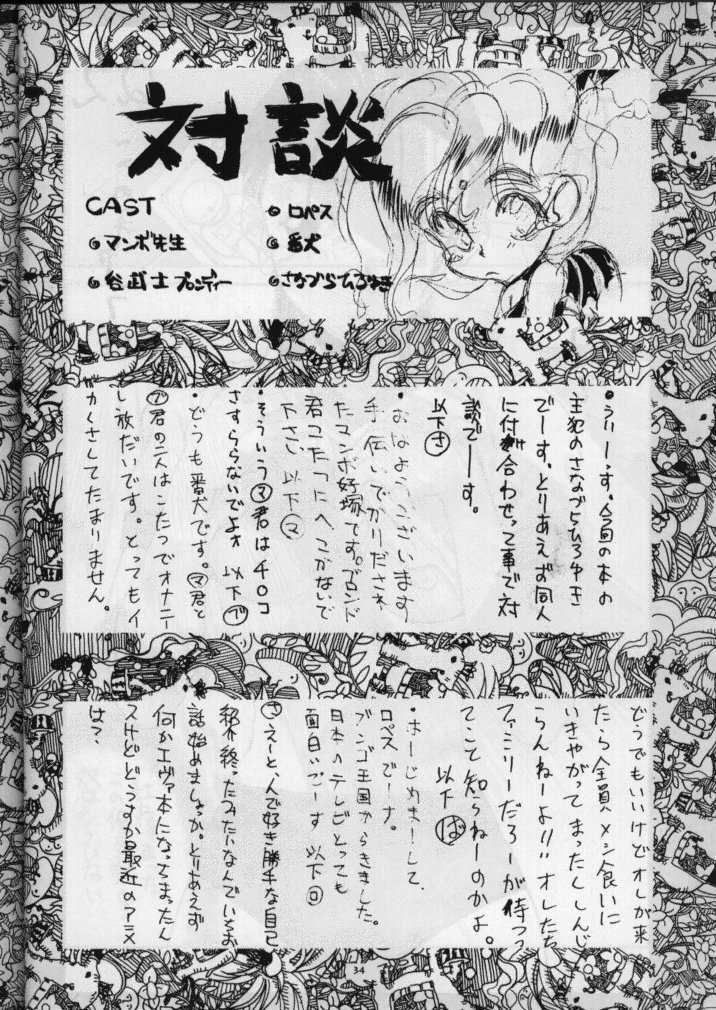 対談
CAST
マンボ先生
谷武士ブンディー
ロペス
番犬
さなづらひろゆき
・うりーっす。今回の本の
主犯のさなづらひろゆき
でーす。とりあえず同人
に付き合わせって事で対
談でーす。
以下さ
・おはようございます
手伝いでかりだされ
たマンボ好塚です。ブロンド
君こたつにへこかないで
下さい 以下マ
・そういうマ君はチ○コ
さすらないでよォ 以下で
・どうも番犬です。マ君と
で君の二人はこたつでオナニー
し放だいです。とってもイ
カくさしてたまりません。
どうでもいいけどオレが来
たら全員メシ食いに
いきやがってまったくしんじ
らんねーよ!!! オレたち
ファミリーだろーが待つっ
てこと知らねーのかよ。
以下ば
・はーじめまーして、
ロペスでーす。
ブンゴ王国からきました。
日本のテレビとっても
面白いでーす 以下ロ
さ えーと、んで好き勝手な自己
紹介終ったみたいなんでいちお
話始めましょっか。とりあえず
何かエヴァ本になってまったん
スけどどうすか最近のアニメ
は?
34